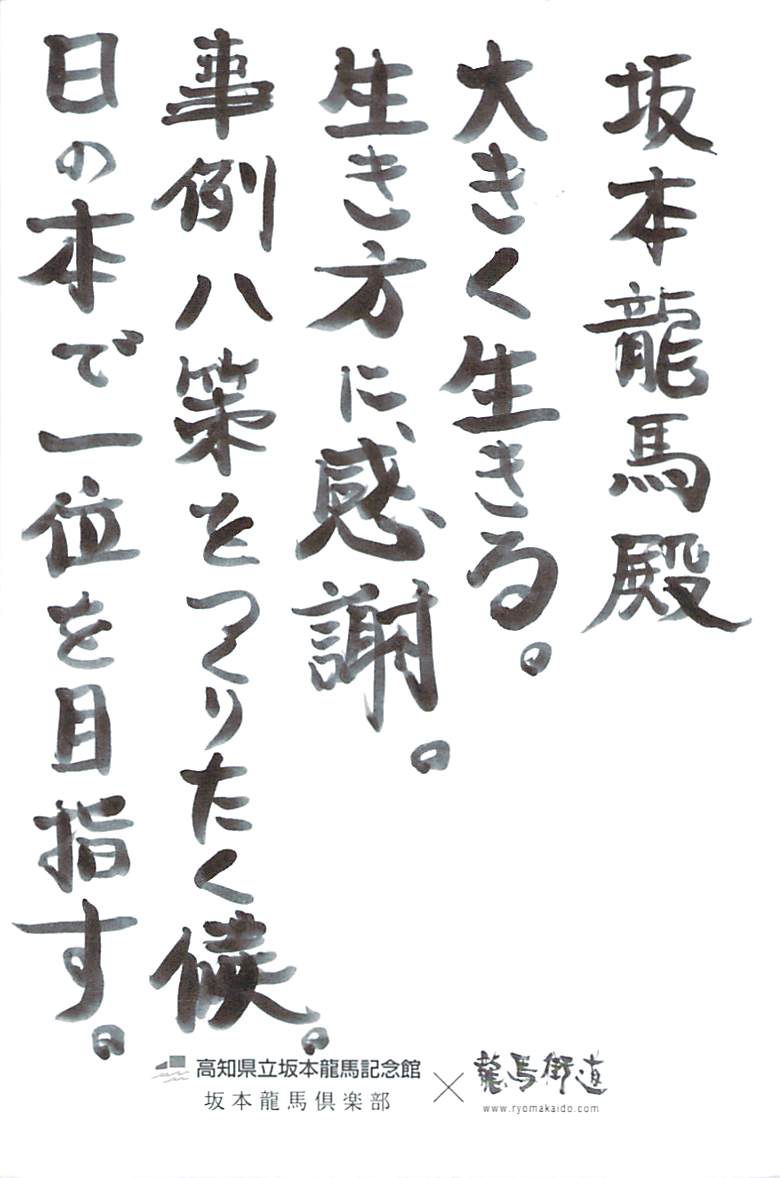 坂本龍馬殿
大きく生きる。
生き方に感謝。
事例八策をつくりたく候。
日の本で一位を目指す。
高知県立坂本龍馬記念館
坂本龍馬倶楽部
×
龍馬街道
www.ryomakaido.com